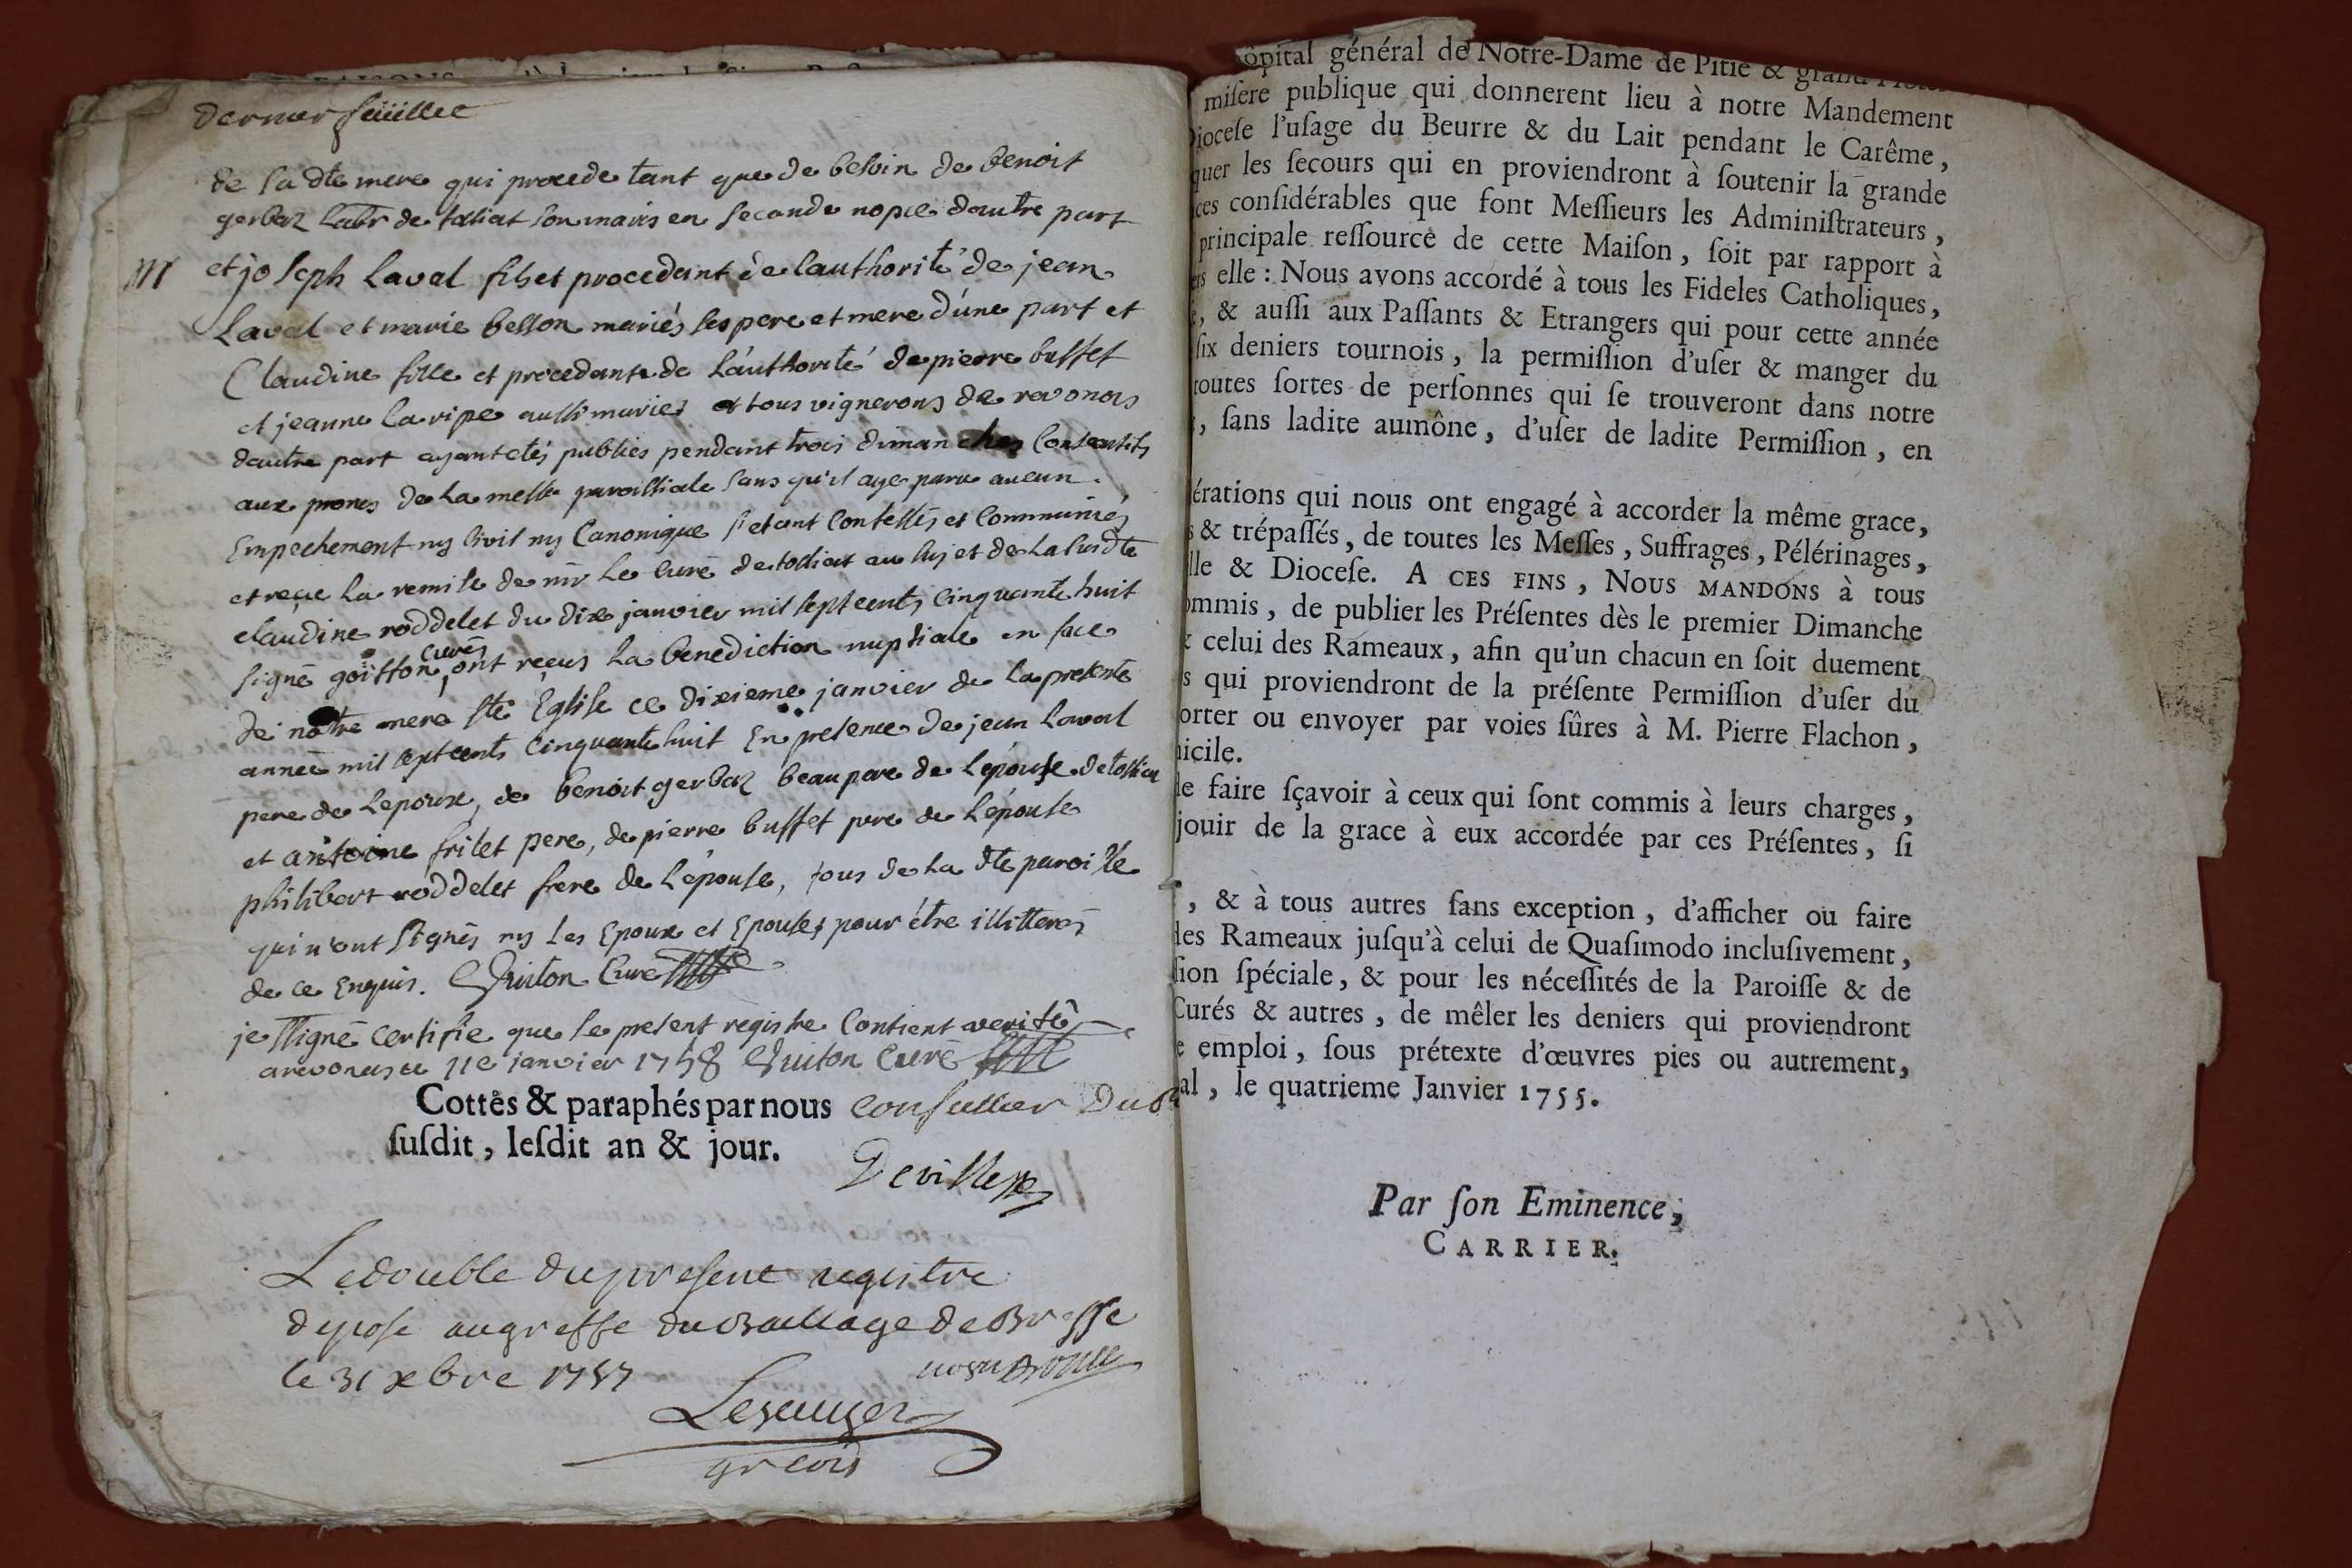 dernier feüillet
de sa dte mere qui procede tant que de besoin de benoit
gerbaz labr de tossiat son maris en seconde nopce dautre part
m et joseph Laval fils et procedant de lauthorité de jean
Laval et marie besson mariés ses pere et mere d'une part et
Claudine fille et procedante de l'authorité de pierre buffet
et jeanne laripe aussi mariés et tous vignerons de revonas
dautre part ayant etés publiés pendant trois dimanches Consecutifs
aux prones de la messe paroissiale sans qu'il aye paru aucun
Empechement ny Civil ny Canonique s'etant Confessés et Communiés
et reçue la remise de mr le Curé de tossiat au sujet de la susdte
claudine roddelet du dix janvier mil sept cents cinquante huit
signé goiffon curés ont reçus la benediction nuptiale en face
de notre mere ste Eglise ce dixieme janvier de la presente
année mil sept cents Cinquante huit En presence de jean Laval
pere de l'epoux, de benoit gerbaz beaupere de l'epouse de tossiat
et antoine frilet pere, de pierre buffet pere de l'épouse
philibert roddelet frere de l'épouse, tous de la dte paroisse
qui n'ont signés ny les Epoux et Epouses pour être illitterés
de ce Enquis. Guiton Curé
je ssigné certifie que le present registre Contient verité
a revonas ce 11e janvier 1758 Guiton Curé
Cottés & paraphés par nous conseiller Du
susdit, lesdit an & jour.
Deville
Le double du present registre
depose au greffe du Bailliage de Bresse
le 31 xbre 1757
Lesauger
ôpital général de Notre-Dame de Pitié & grand
miſere publique qui donnerent lieu à notre Mandement
Dioceſe l'uſage du Beurre & du Lait pendant le Carême,
quer les ſecours qui en proviendront à ſoutenir la grande
ces conſidérables que font Meſſieurs les Adminiſtrateurs,
principale reſſource de cette Maiſon, ſoit par rapport à
ers elle : Nous avons accordé à tous les Fideles Catholiques,
, & auſſi aux Paſſants & Etrangers qui pour cette année
ſix deniers tournois, la permiſſion d'uſer & manger du
toutes ſortes de perſonnes qui ſe trouveront dans notre
, ſans ladite aumône, d'uſer de ladite Permiſſion, en
érations qui nous ont engagé à accorder la même grace,
s & trépaſſés, de toutes les Meſſes, Suffrages, Pélérinages,
lle & Dioceſe. A CES FINS, NOUS MANDONS à tous
ommis, de publier les Préſentes dès le premier Dimanche
& celui des Rameaux, afin qu'un chacun en ſoit duement
s qui proviendront de la préſente Permiſſion d'uſer du
orter ou envoyer par voies ſûres à M. Pierre Flachon,
icile.
de faire ſçavoir à ceux qui ſont commis à leurs charges,
jouir de la grace à eux accordée par ces Préſentes, ſi
, & à tous autres ſans exception, d'afficher ou faire
des Rameaux juſqu'à celui de Quaſimodo incluſivement,
ſion ſpéciale, & pour les néceſſités de la Paroiſſe & de
Curés & autres, de mêler les deniers qui proviendront
e emploi, ſous prétexte d'œuvres pies ou autrement,
al, le quatrieme Janvier 1755.
Par ſon Eminence,
CARRIER.